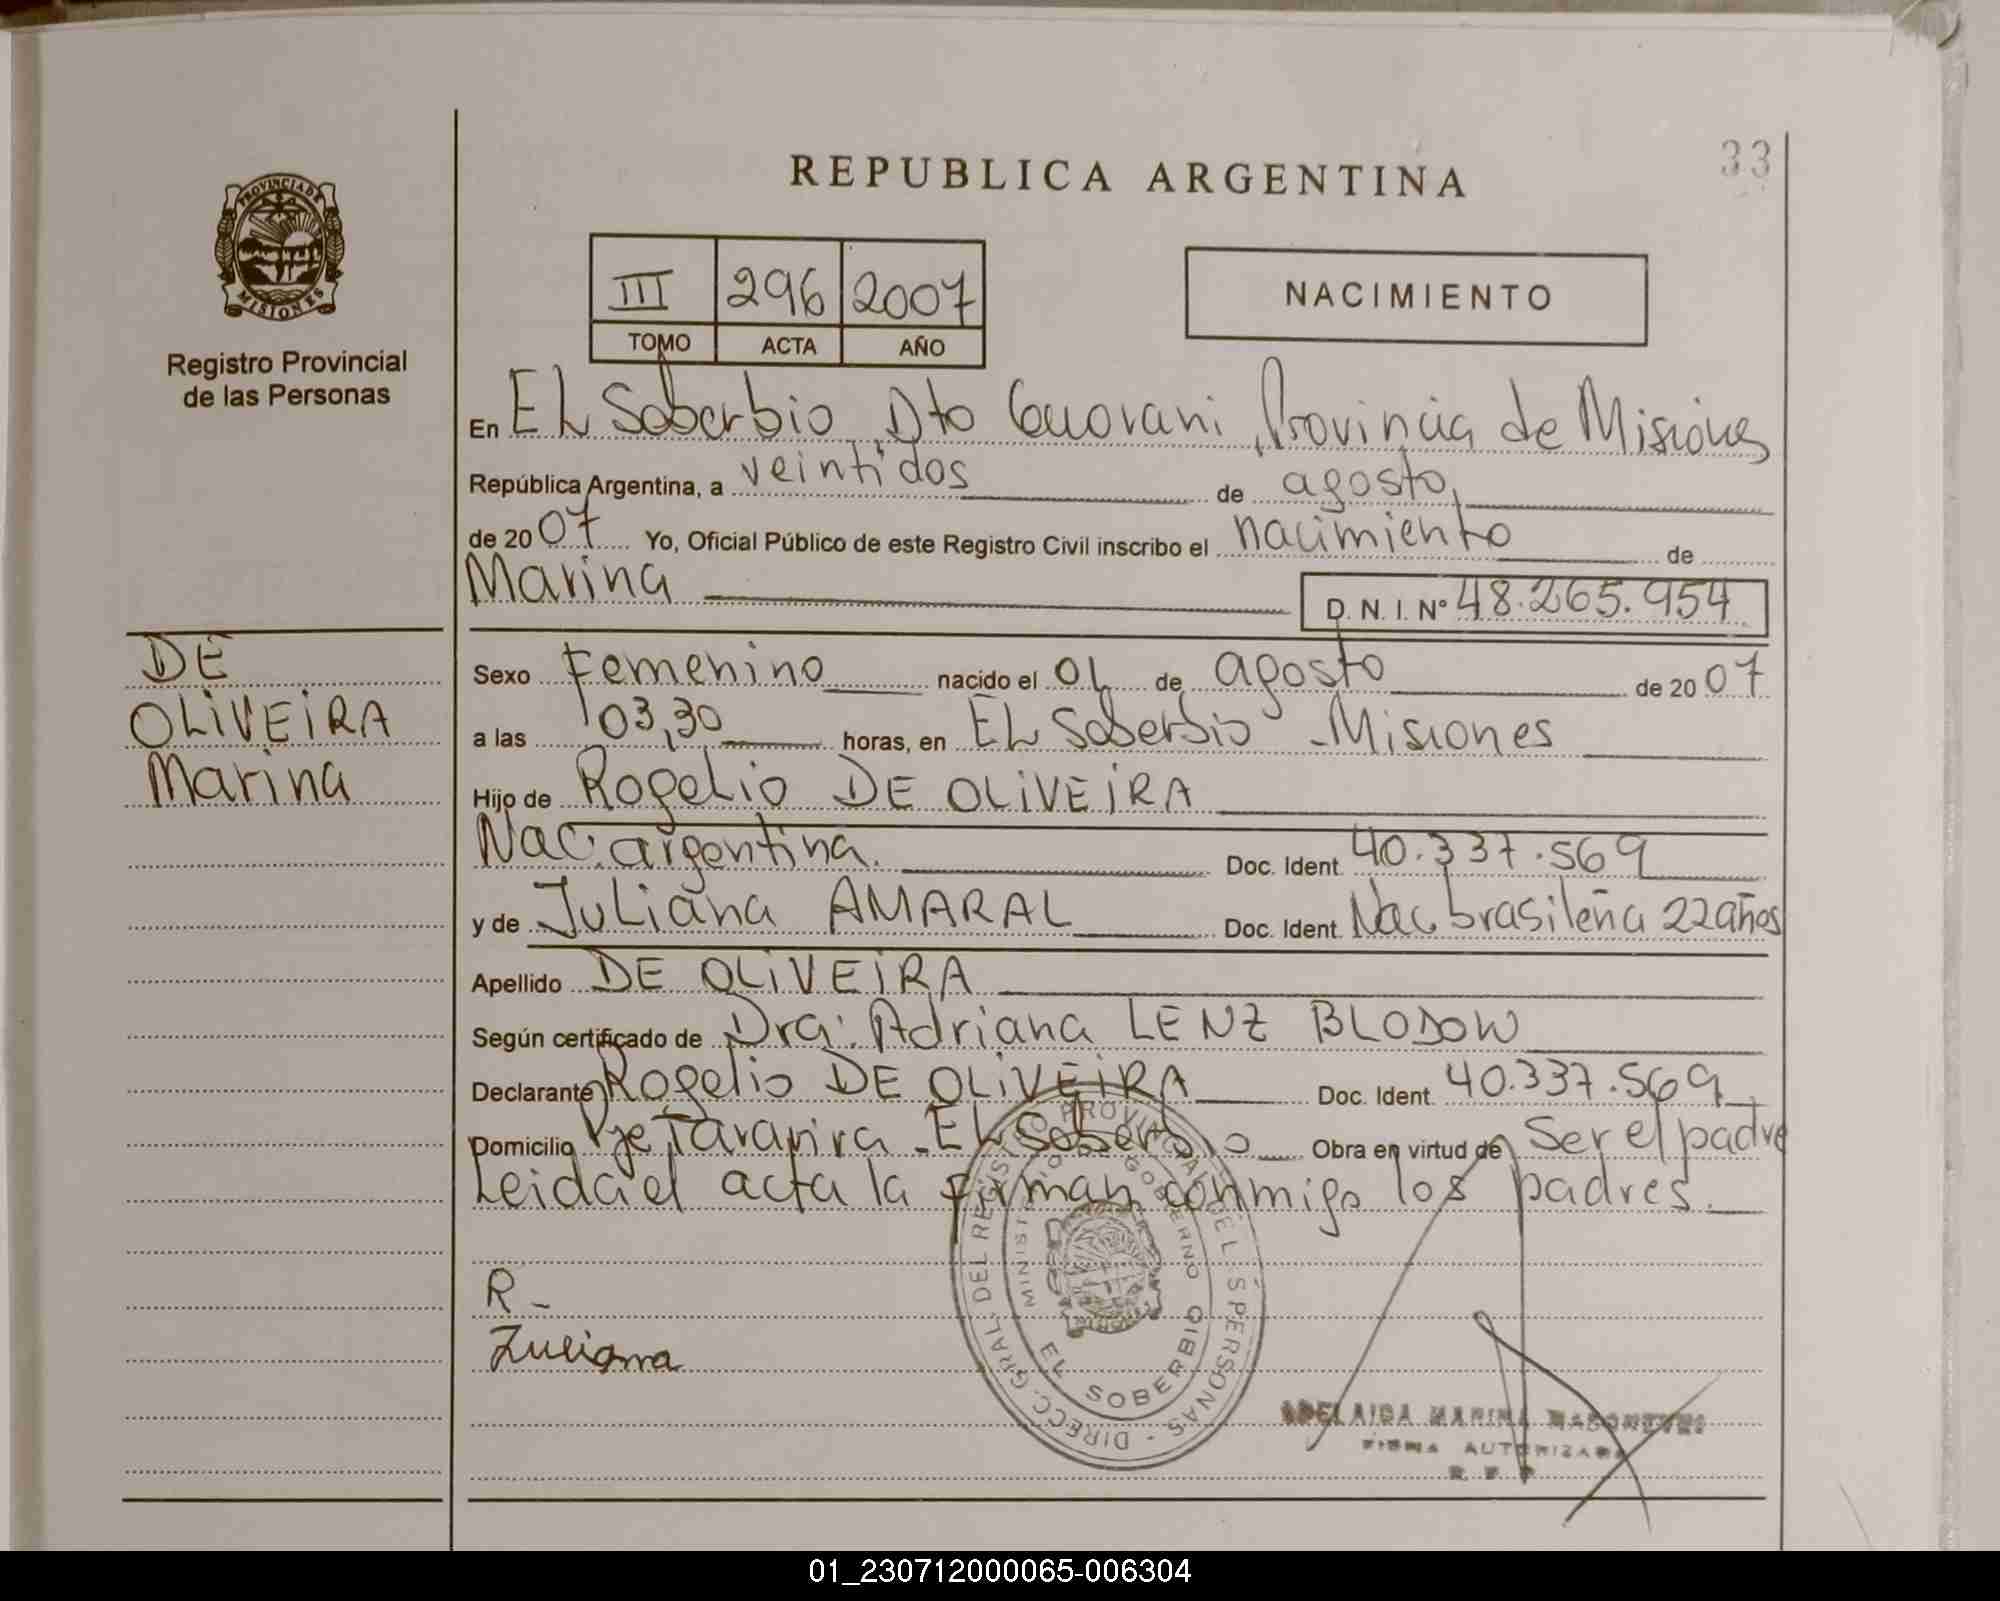 33
REPUBLICA ARGENTINA
PROVINCIA DE
MISIONES
Registro Provincial
de las Personas
III 296 2007
TOMO ACTA AÑO
NACIMIENTO
En EL Soberbio, Dto Guarani, Provincia de Misiones
República Argentina, a veintidos de agosto,
de 2007 Yo, Oficial Público de este Registro Civil inscribo el nacimiento de
Marina D. N. I. Nº 48.265.954
DE
OLIVEIRA
Marina
Sexo Femenino nacido el 01 de agosto de 2007
a las 03,30 horas, en EL Soberbio - Misiones
Hijo de Rogelio DE OLIVEIRA
Nac. argentina. Doc. Ident. 40.337.569
y de Juliana AMARAL Doc. Ident. Nac brasileña 22 años
Apellido DE OLIVEIRA
Según certificado de Dra: Adriana LENZ BLODOW
Declarante Rogelio DE OLIVEIRA Doc. Ident. 40.337.569
Domicilio Pje Tararira - EL Soberbio Obra en virtud de Ser el padre
Leida el acta la firman conmigo los padres.
R -
Zuliana
DIRECC. GRAL. DEL REGISTRO PROVINCIAL DE LAS PERSONAS
MINISTERIO DE GOBIERNO
EL SOBERBIO
ADELAIDA MARINA
FIRMA AUTORIZADA
01_230712000065-006304